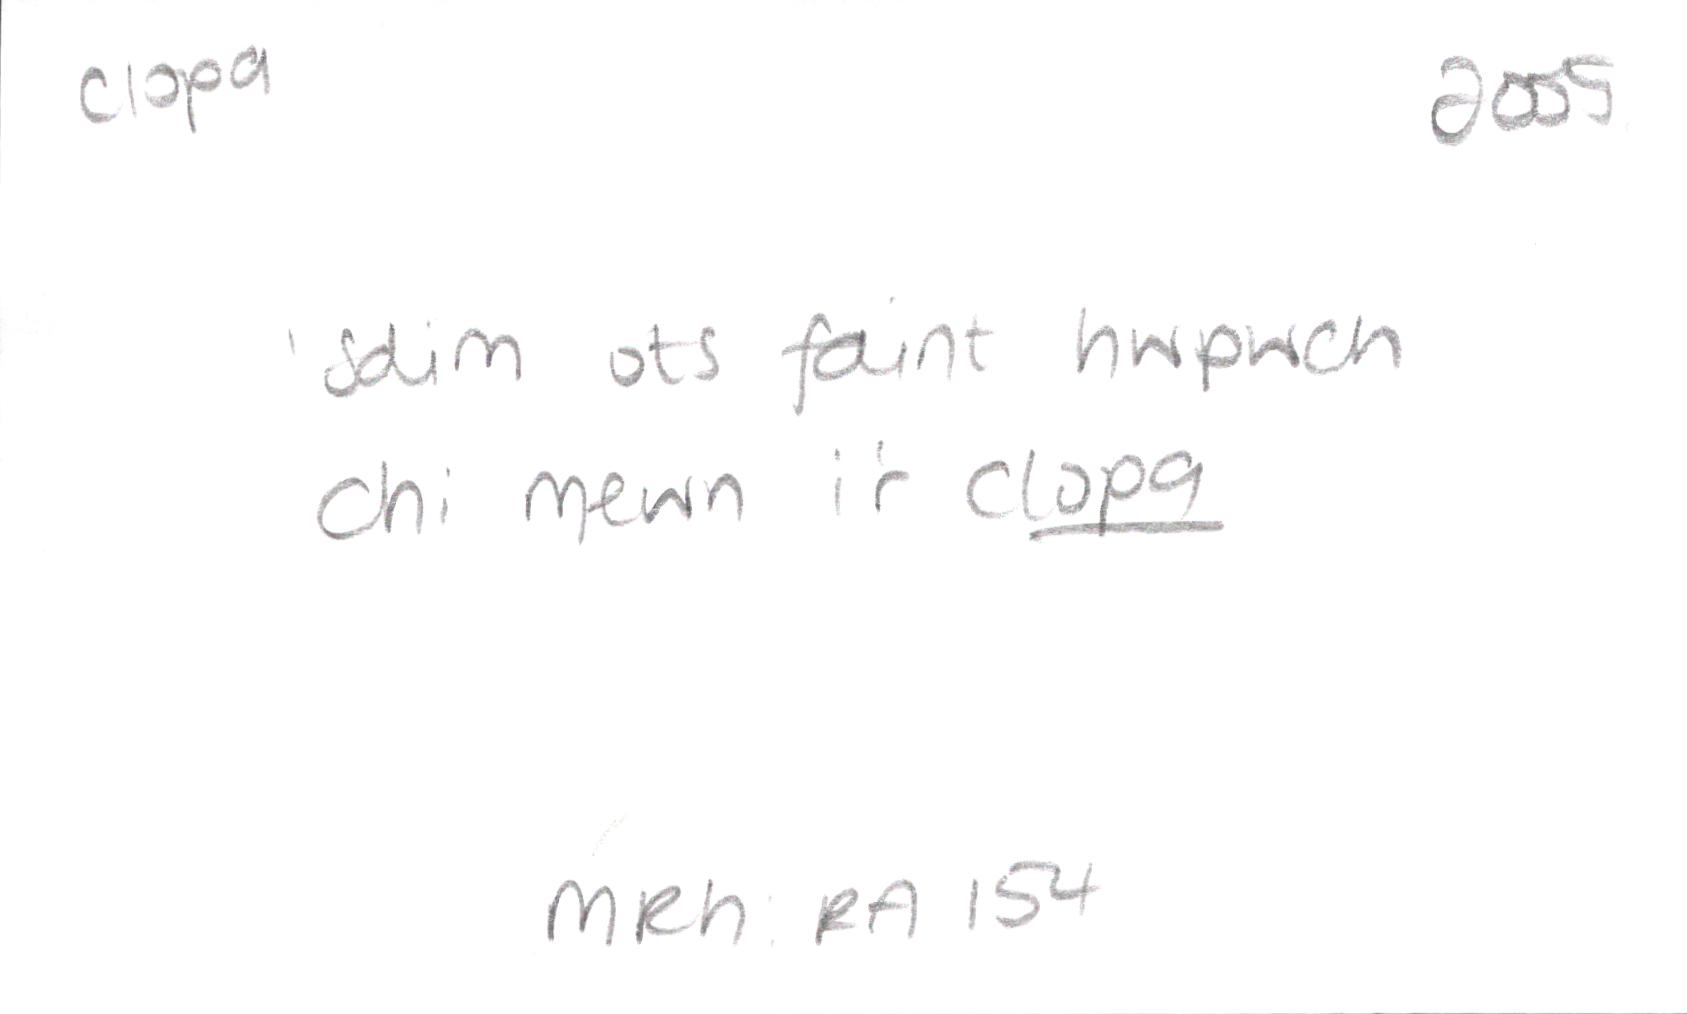 clopa 2005
'sdim ots faint hwpwch
chi mewn i'r clopa
MRh: RA 154